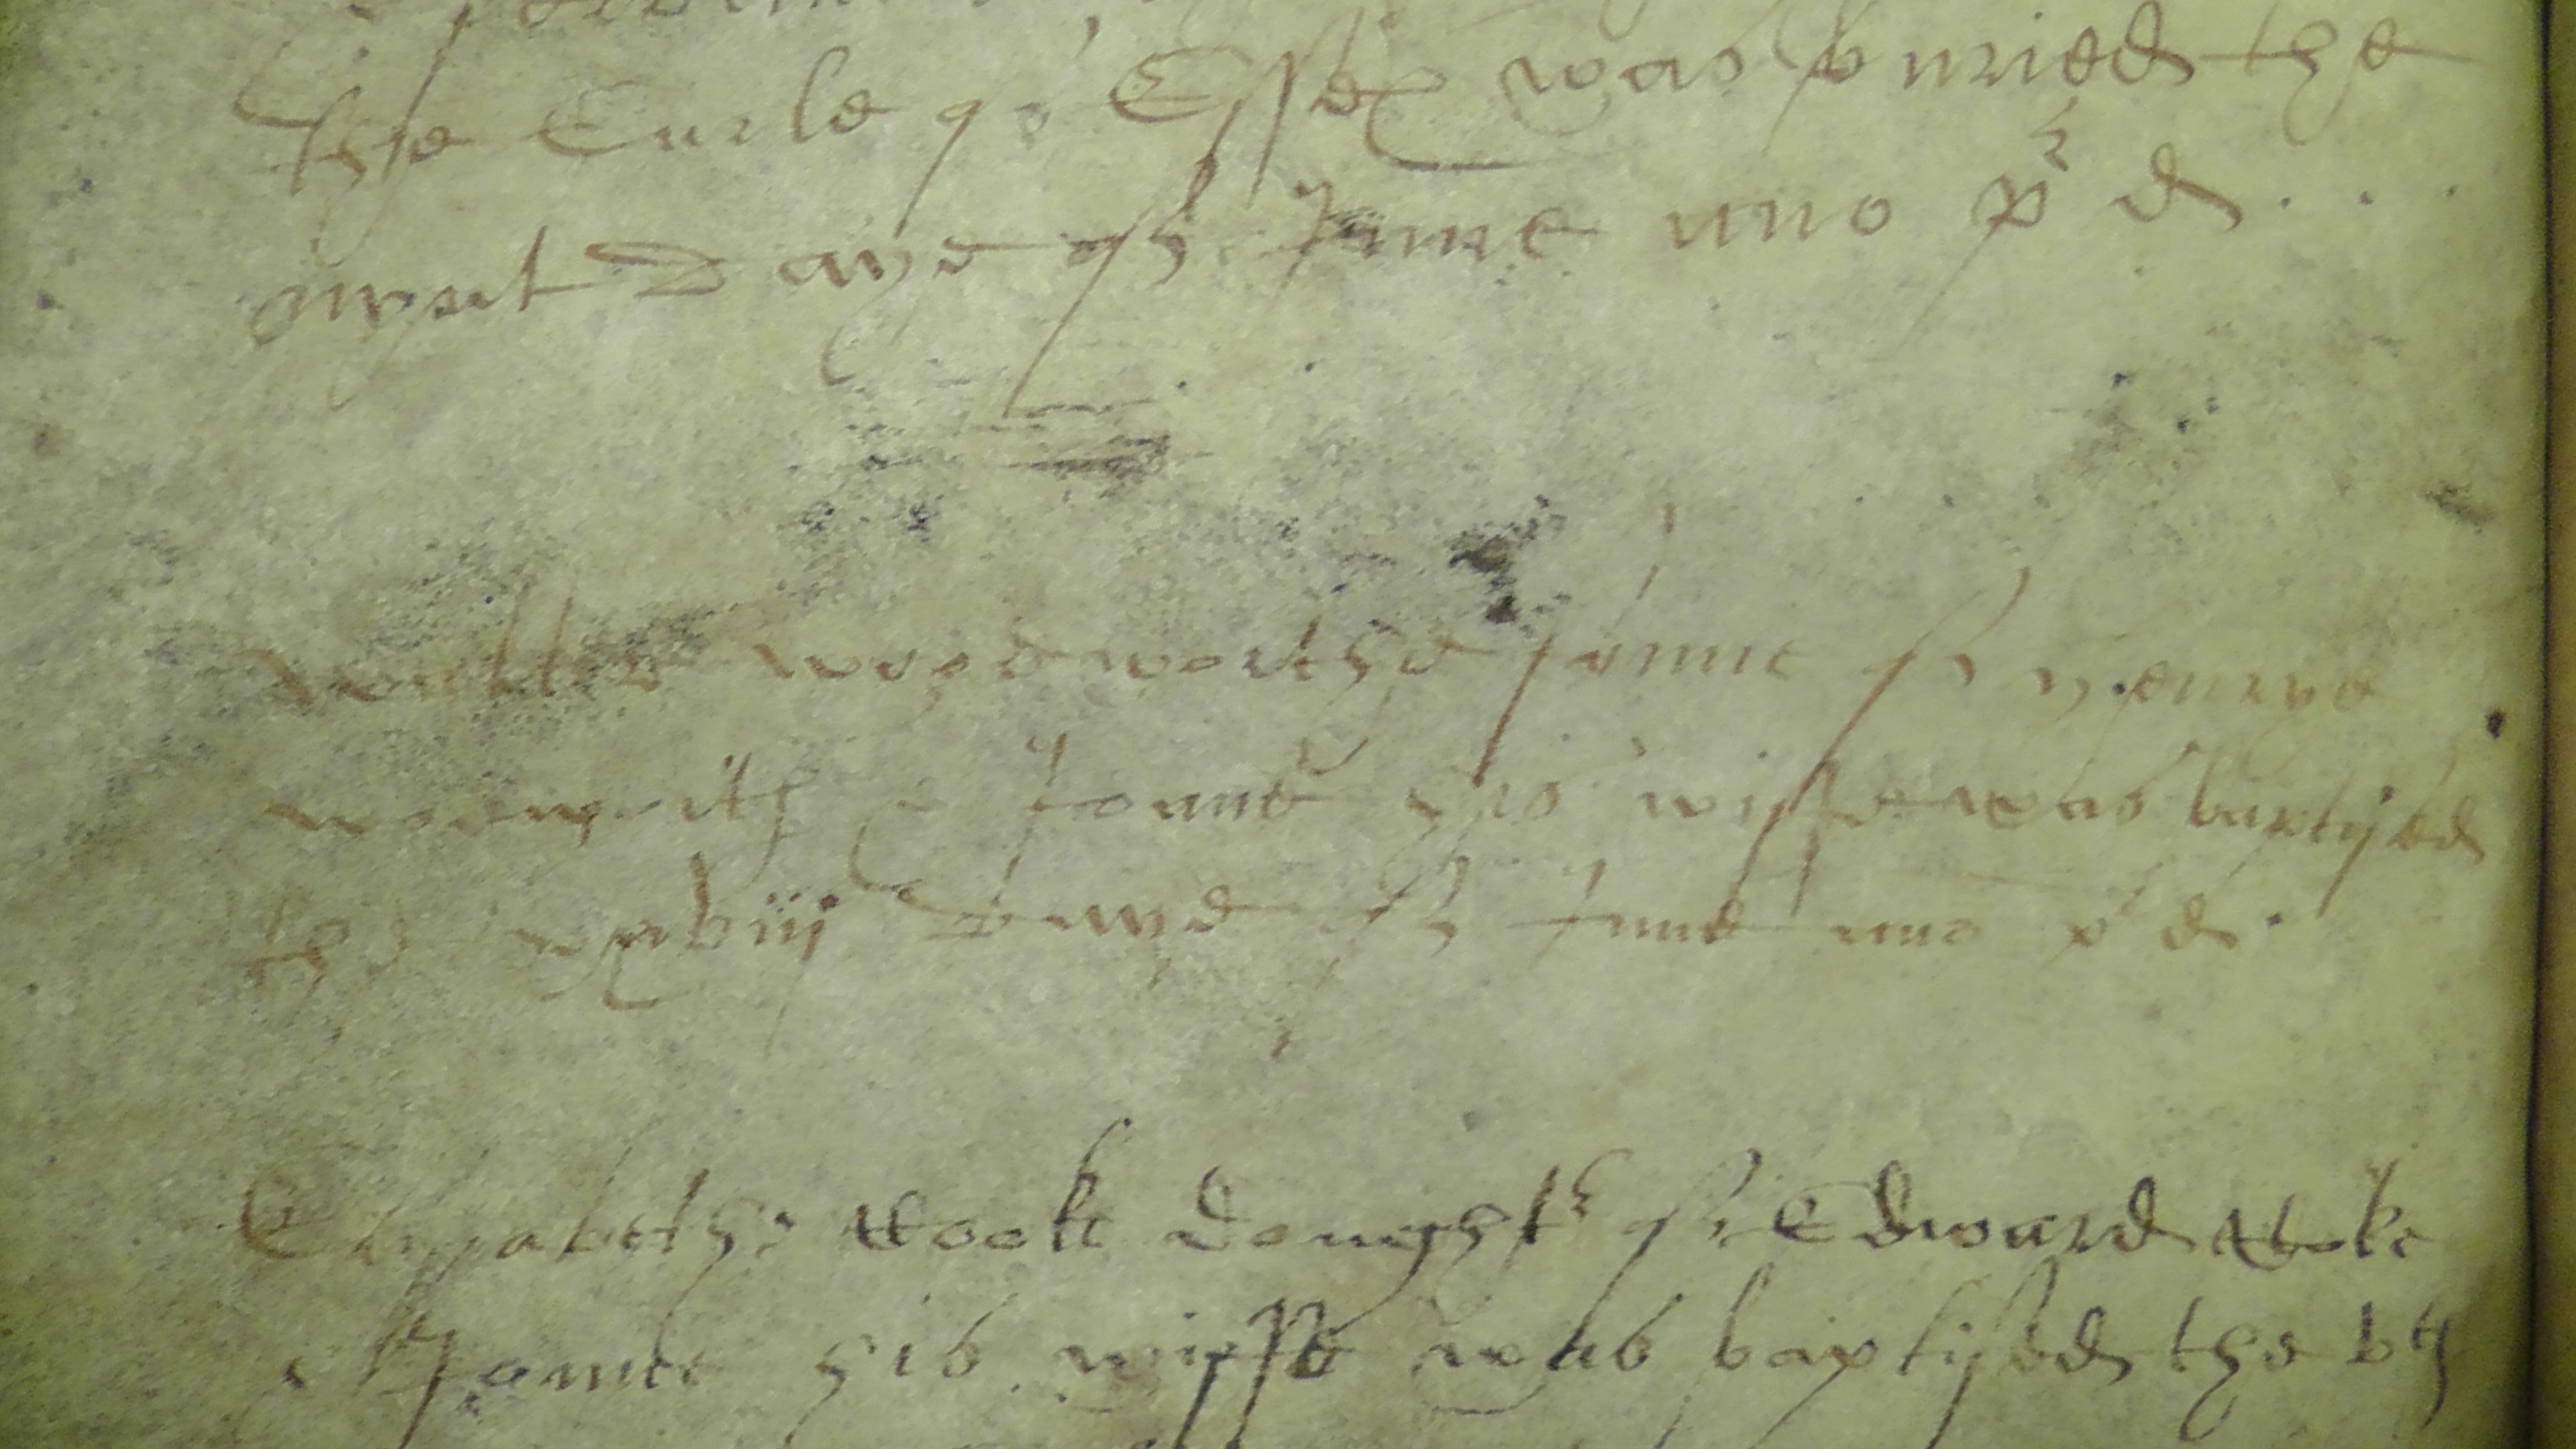 the Earle of Essex was buried the
next Daye of June ano pd
Walter woodworthe sonne of Henrye
woodworth & Joane his wiffe was baptysed
the xxviij Daye of June ano pd
Elyzabeth Cooke Doughtr of Edward Coke
& Jone his wiffe was baptysed the vth